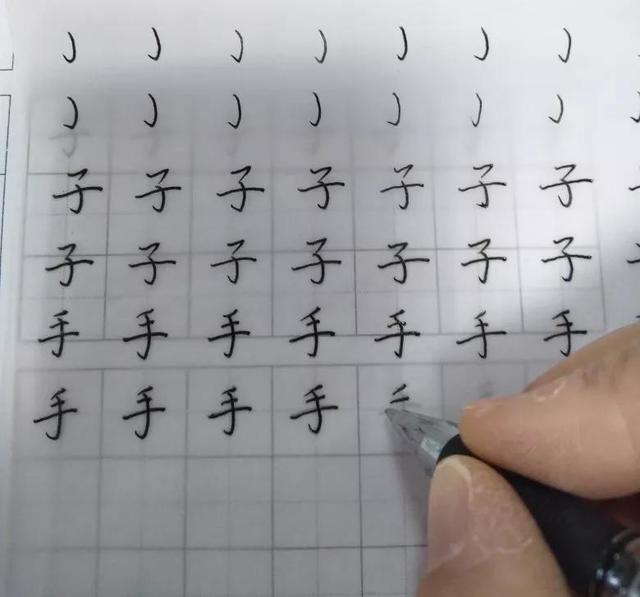 亅 亅 亅 亅 亅 亅 亅
亅 亅 亅 亅 亅 亅 亅
子 子 子 子 子 子 子
子 子 子 子 子 子 子
手 手 手 手 手 手 手
手 手 手 手